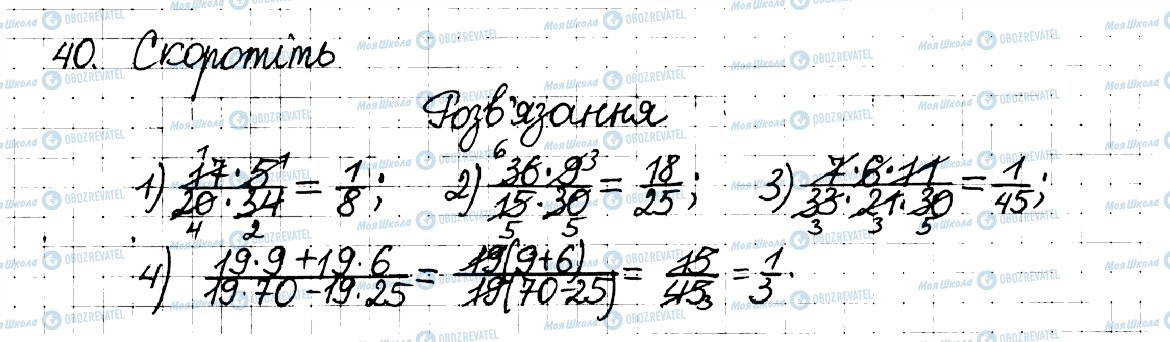 40. Скоротіть
Розв'язання
1) (17·5)/(20·34) = 1/8; 2) (36·9)/(15·30) = 18/25; 3) (7·6·11)/(33·21·30) = 1/45;
4) (19·9+19·6)/(19·70-19·25) = (19(9+6))/(19(70-25)) = 15/45 = 1/3.